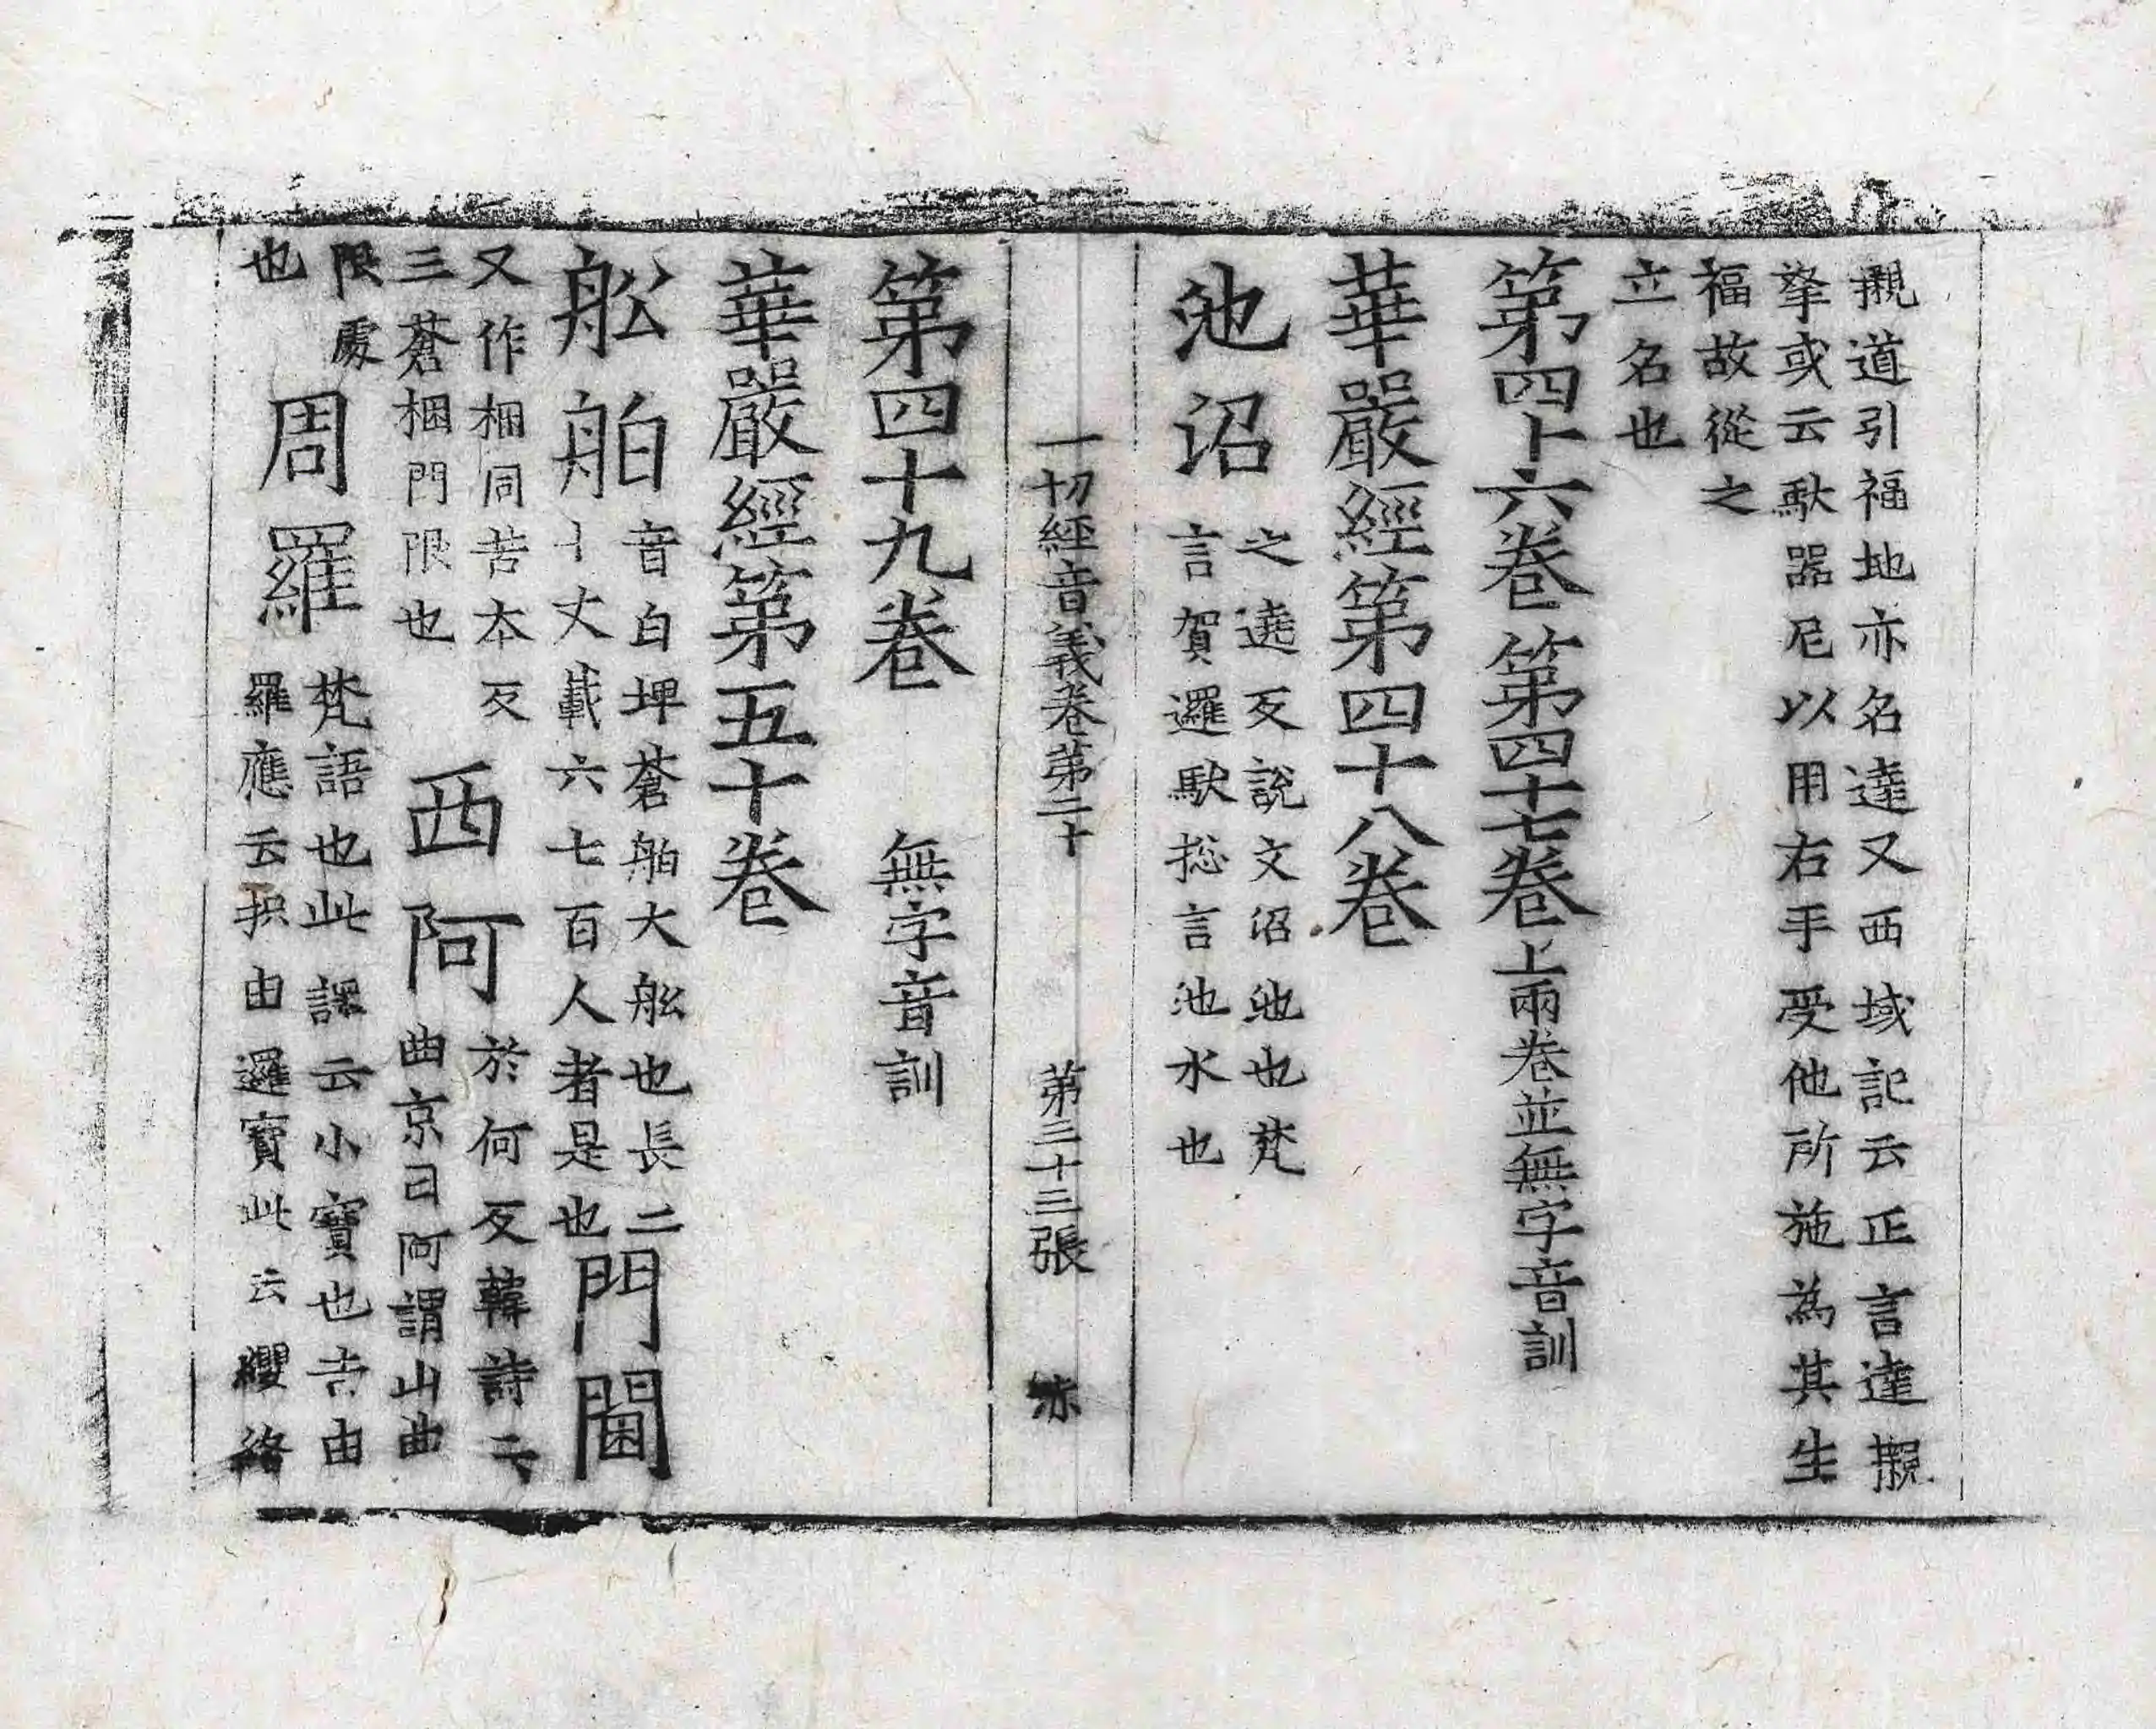 儭道引福地亦名達又西域記云正言達儭
拏或云馱器尼以用右手受他所施為其生
福故從之
立名也
第四十六卷 第四十七卷 上兩卷並無字音訓
華嚴經第四十八卷
池沼 之遶反說文沼池也梵
言賀邏馱揔言池水也
一切經音義卷第二十 第三十三張 亦
第四十九卷 無字音訓
華嚴經第五十卷
舩舶 音白埤蒼舶大舩也長二
十丈載六七百人者是也 門閫
又作梱同苦本反
三蒼梱門限也 西阿 於何反韓詩云
曲京曰阿謂山曲
隈處
也 周羅 梵語也此譯云小寶也吉由
羅應云枳由邏寶此云纓絡